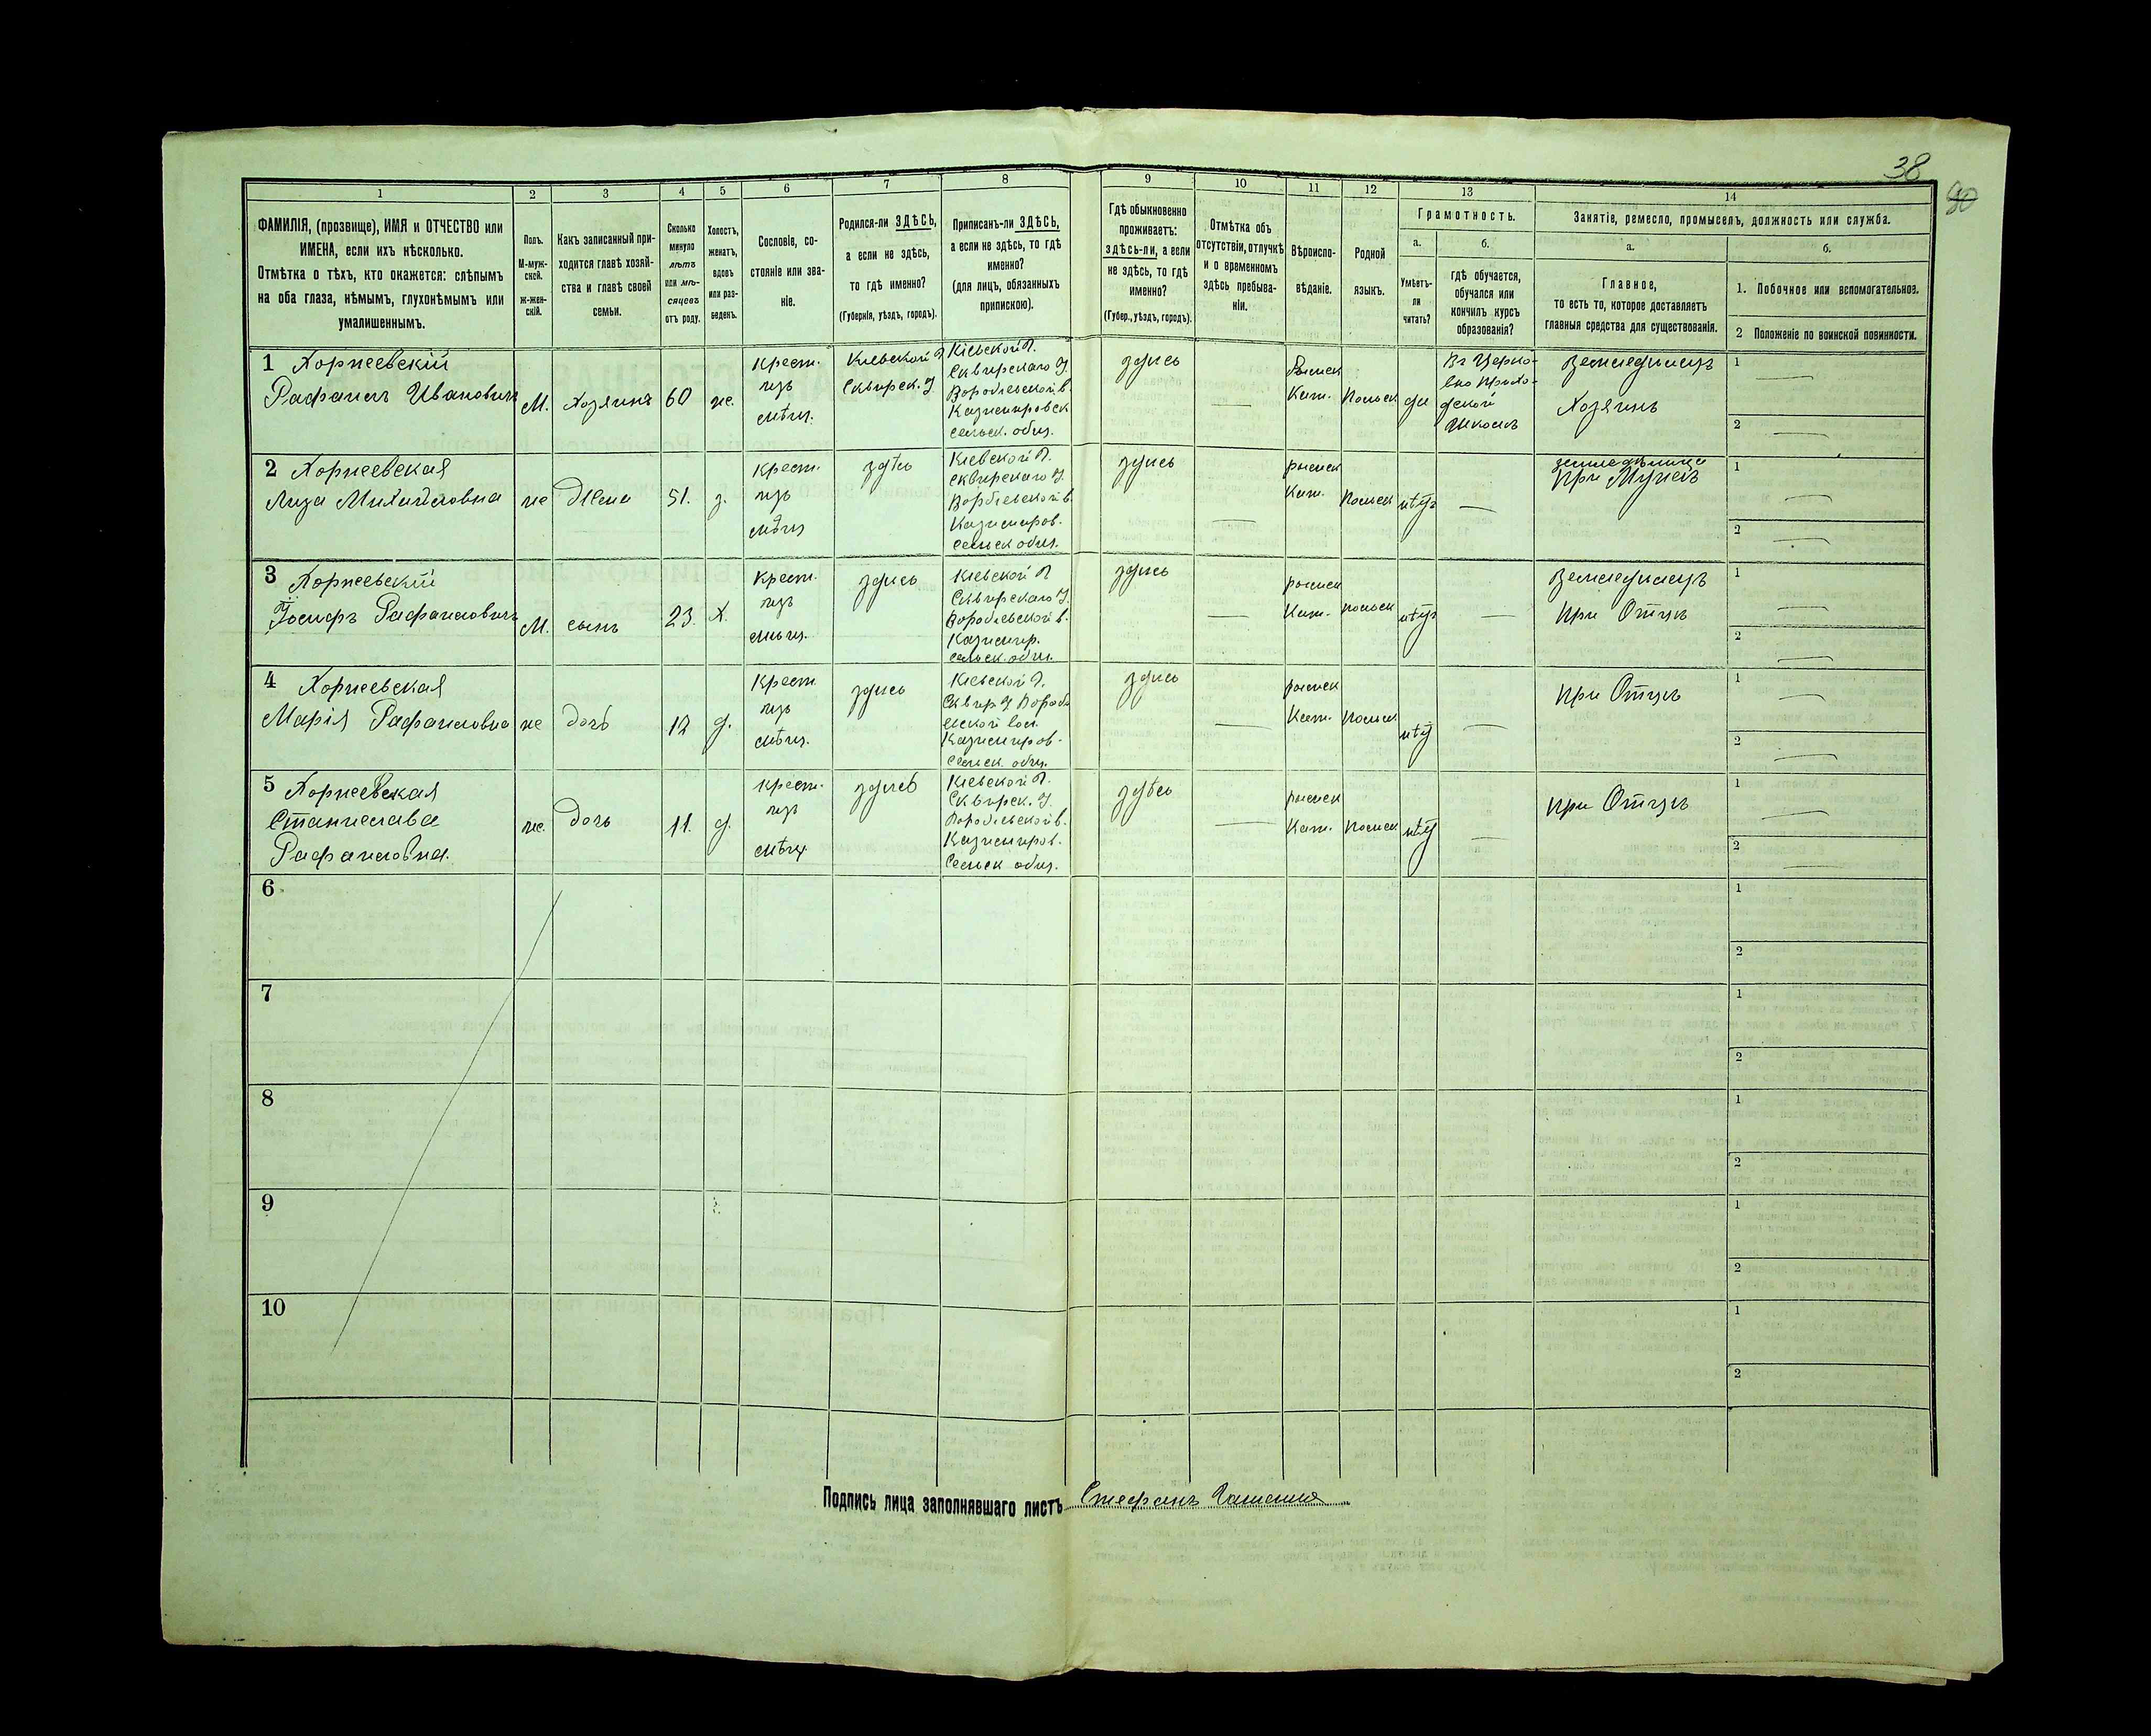 38
80
1
2
3
4
5
6
7
8
9
10
11
12
13
14
ФАМИЛІЯ, (прозвище), ИМЯ и ОТЧЕСТВО или
ИМЕНА, если ихъ нѣсколько.
Отмѣтка о тѣхъ, кто окажется: слѣпымъ
на оба глаза, нѣмымъ, глухонѣмымъ или
умалишеннымъ.
Полъ.
М-муж-
ской.
ж-жен-
скій.
Какъ записанный при-
ходится главѣ хозяй-
ства и главѣ своей
семьи.
Сколько
минуло
лѣтъ
или мѣ-
сяцевъ
отъ роду.
Холостъ,
женатъ,
вдовъ
или раз-
веденъ.
Сословіе, со-
стояніе или зва-
ніе.
Родился-ли ЗДѢСЬ,
а если не здѣсь,
то гдѣ именно?
(Губернія, уѣздъ, городъ).
Приписанъ-ли ЗДѢСЬ,
а если не здѣсь, то гдѣ
именно?
(для лицъ, обязанныхъ
припискою).
Гдѣ обыкновенно
проживаетъ:
здѣсь-ли, а если
не здѣсь, то гдѣ
именно?
(Губер., уѣздъ, городъ).
Отмѣтка объ
отсутствіи, отлучкѣ
и о временномъ
здѣсь пребыва-
ніи.
Вѣроиспо-
вѣданіе.
Родной
языкъ.
Грамотность.
а.
Умѣетъ-
ли
читать?
б.
гдѣ обучается,
обучался или
кончилъ курсъ
образованія?
Занятіе, ремесло, промыселъ, должность или служба.
а.
Главное,
то есть то, которое доставляетъ
главныя средства для существованія.
б.
1. Побочное или вспомогательное.
2 Положеніе по воинской повинности.
1 Хорнеевскій
Рафаилъ Ивановичъ
М.
Хозяинъ
60
же.
Крест.
изъ
мѣщ.
Кіевской Г.
Сквирск. У
Кіевской Г.
Сквирскаго У.
Воробіевской в.
Казимировск
сельск. общ.
здѣсь
Римск
Кат.
Польск
да
Въ Церко-
вно Прихо-
дской
Школѣ
Земледѣлецъ
Хозяинъ
1
2
2 Хорнеевская
Лиза Михайловна
же
Жена
51.
з.
Крест.
изъ
мѣщ
здѣсь
Кіевской Г.
сквирскаго У.
Воробіевской в
Казимиров.
сельск общ.
здѣсь
римск
Кат.
Польск
нѣтъ
земледѣлица
При Мужѣ
1
2
3 Хорнеевскій
Іосифъ Рафаиловичъ
М.
сынъ
23.
Х.
Крест.
изъ
мѣщ.
здѣсь
Кіевской Г
Сквирскаго У.
Воробіевской в.
Казимир.
сельск. общ.
здѣсь
римск
Кат.
польск
нѣтъ
Земледѣлецъ
при Отцѣ
1
2
4 Хорнеевская
Марія Рафаиловна
же
дочь
12
д.
Крест
изъ
мѣщ.
здѣсь
Кіевской Г.
Сквир У Вороби
евской вол.
Казимиров-
Сельск. общ.
здѣсь
римск
Кат.
польск
нѣт
при Отцѣ
1
2
5 Хорнеевская
Станислава
Рафаиловна.
же.
дочь
11.
д.
крест.
изъ
мѣщ.
здѣсь
Кіевской Г.
Сквирск. У.
Воробіевской в.
Казимиров.
Сельск общ.
здѣсь
римск
Кат.
польск
нѣт
при Отцѣ
1
2
6
1
2
7
1
2
8
1
2
9
1
2
10
1
2
Подпись лица заполнявшаго листъ Стефанъ